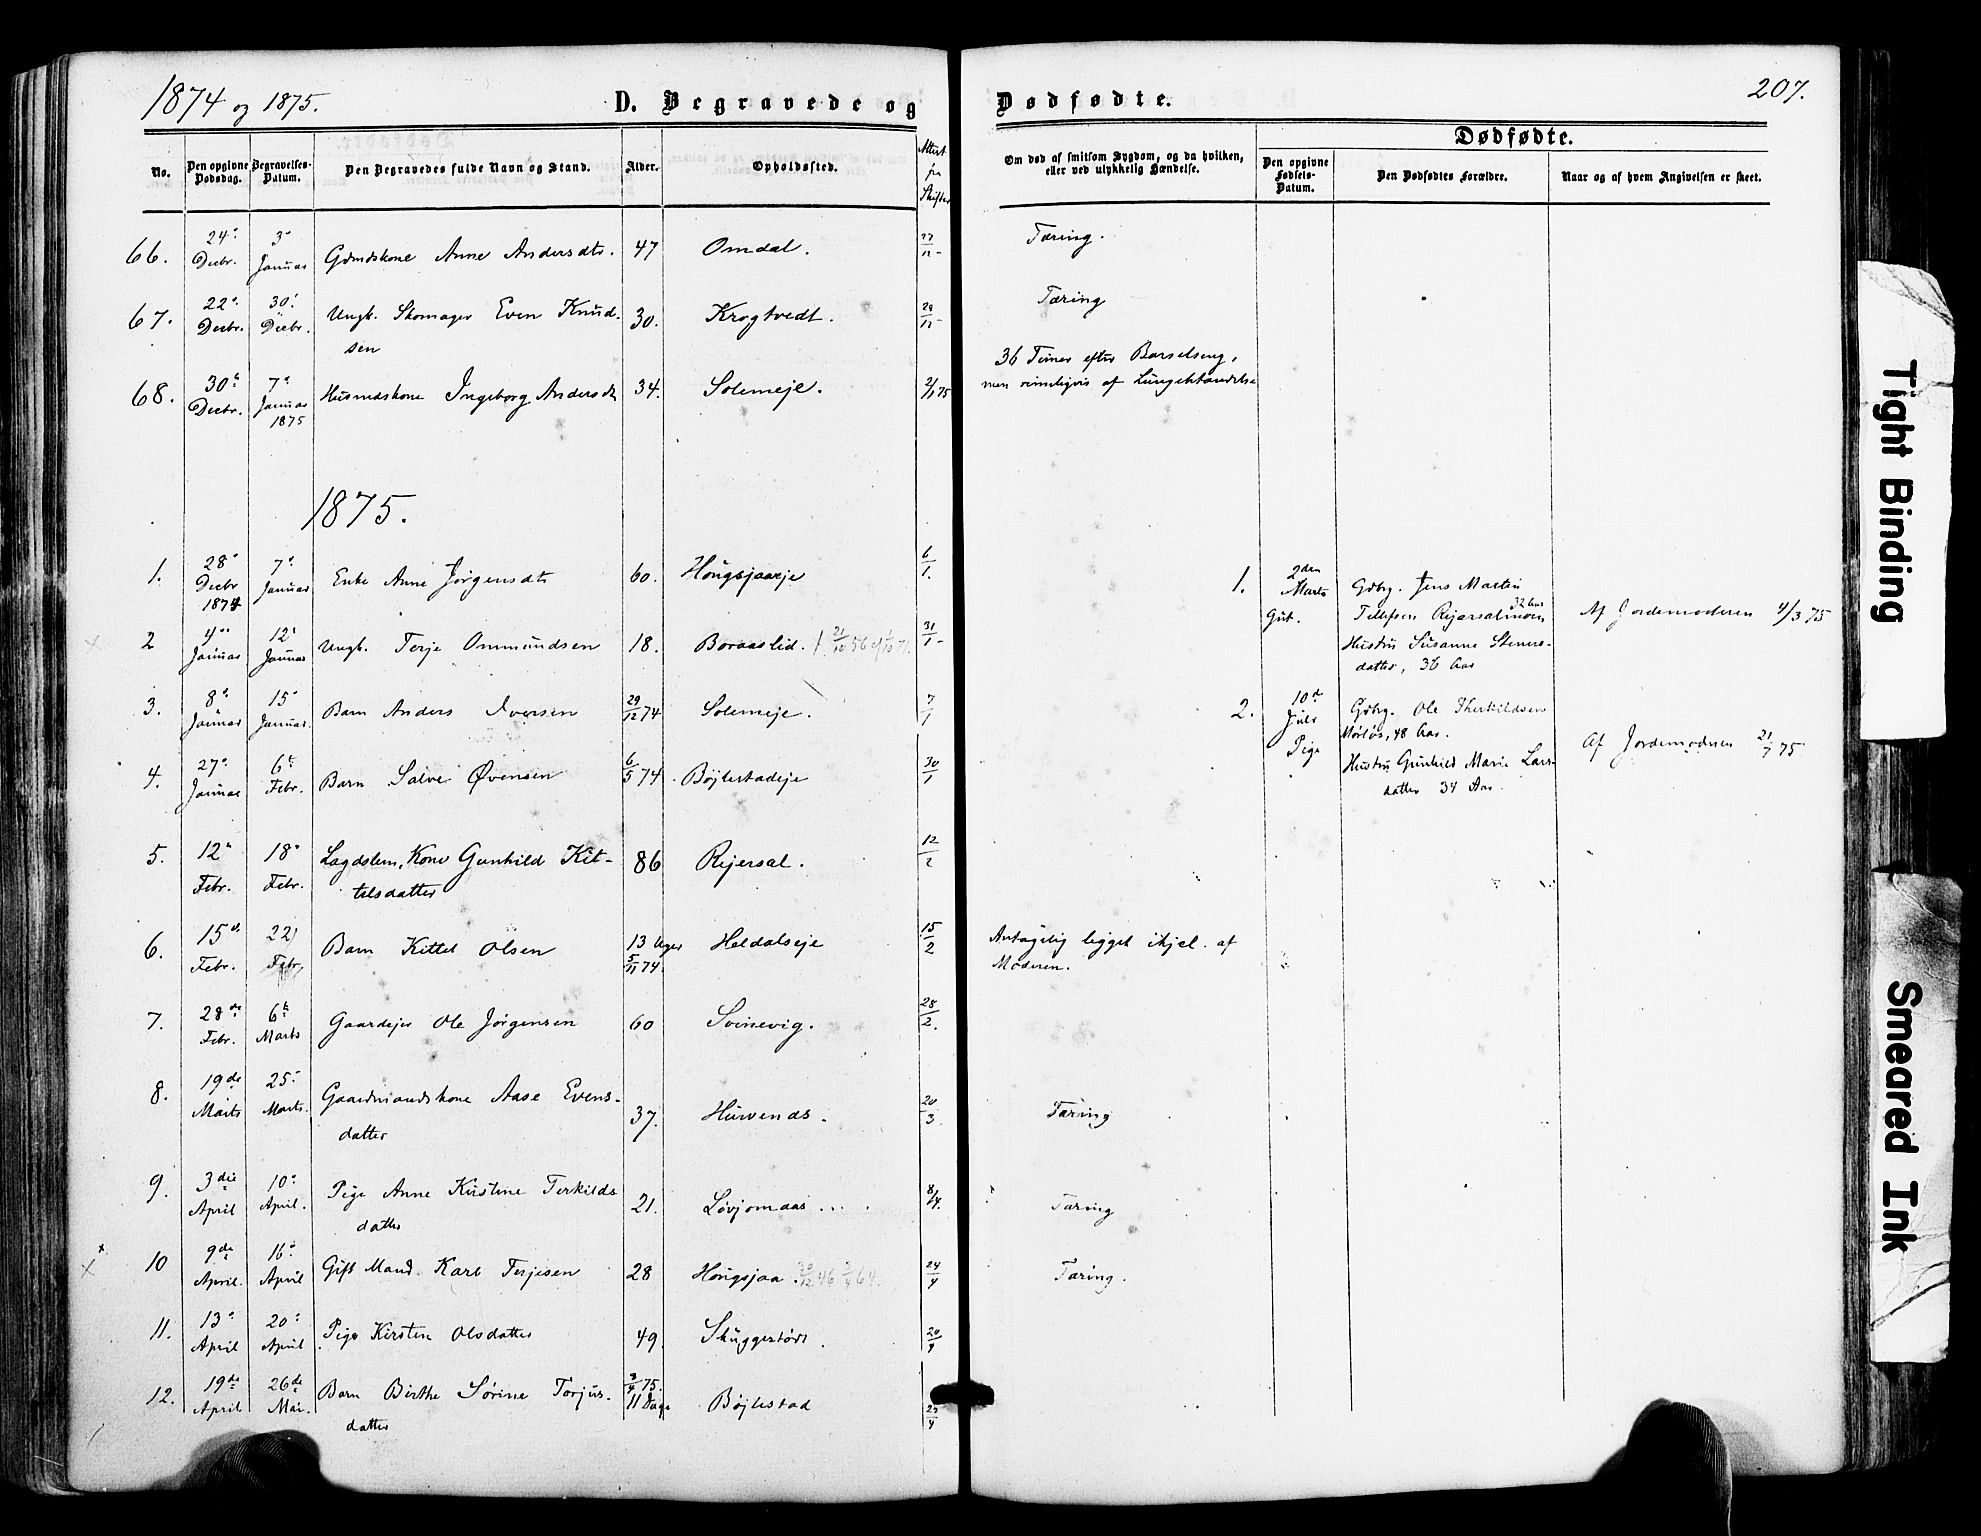 1874 og 1875.
D. Begravede og
Dødfødte.
207.
No.
Den opgivne Dødsdag.
Begravelses-Datum.
Den Begravedes fulde Navn og Stand.
Alder.
Opholdssted.
Attest fra Skifter
Om død af smitsom Sygdom, og da hvilken, eller ved ulykkelig Hændelse.
Dødfødte.
Den opgivne Fødsels-Datum.
Den Dødfødtes Forældre.
Naar og af hvem Angivelsen er skeet.
66. 24de Decbr. 3de Januar Grmdskone Anne Andersdtr. 47 Omdal. Tæring.
67. 22de Decbr. 30. Decbr. Ungk. Skomager Even Knud-
sen 30. Krogtvedt. 29/12 Tæring
68. 30te Decbr. 7de Januar 1875 Husmdskone Ingeborg Andersdtr 34. Solemeje. 2/1 75
36 Timer efter Barselseng,
men rimeligvis af Lungebetændelse
1875.
1. 28 Decbr 1874 7de Januar Enke Anne Jørgensdtr 60. Hougsjaaeje 6/1.
2 4de Januar 12te Januar Ungk. Terje Ommundsen 18. Boraaslid. 31/1
3. 8de Januar 15 Januar Barn Anders Iversen 29/12 74 Solemeje. 7/1
4. 27de Januar 6te Febr. Barn Salve Øvensen 6/5 74 Bøjlestadeje 30/1
5. 12te Febr. 18de Febr. Lægdslem, Kone Gunhild Kit-
telsdatter 86 Rejersal. 12/2
6. 15de Febr. 22 Febr. Barn Kittel Olsen 13 Uger 5/11 74. Heldalseje 15/2
Antagelig ligget ihjel af
Moderen.
7. 28de Febr. 6te Marts Gaardejer Ole Jørgensen 60 Svinevig. 28/2.
8. 19de Marts 25. Marts. Gaardmandskone Aase Evens-
datter 37. Hurvenes. 20/3. Tæring
9. 3die April 10de April. Pige Anne Kirstine Terkilds
datter 21. Løvjomaas 8/4. Tæring
10 9de April. 16de April Gift Mand Karl Terjesen 28 Hougsjaa 24/4 Tæring.
11. 13de April 20de April Pige Kirsten Olsdatter 49. Skuggestødt.
12. 19de April 26de Mai. Barn Birthe Sørine Torjus-
datter 75. 11 Dage Bøjlestad
1. 2den Marts Gut. Gdbrg. Jens Martin
Tellefsen Rejersalmoen 32 Aar
Hustru Susanne Steners-
datter, 36 Aar
Af Jordemoderen 4/3 75
2. 10d Juli Pige Gdbrg. Ole Therkildsen
Mørløs, 48 Aar.
Hustru Gunhild Marie Lars-
datter 34 Aar.
Af Jordemoderen 21/7 75
Tight Binding
Smeared Ink